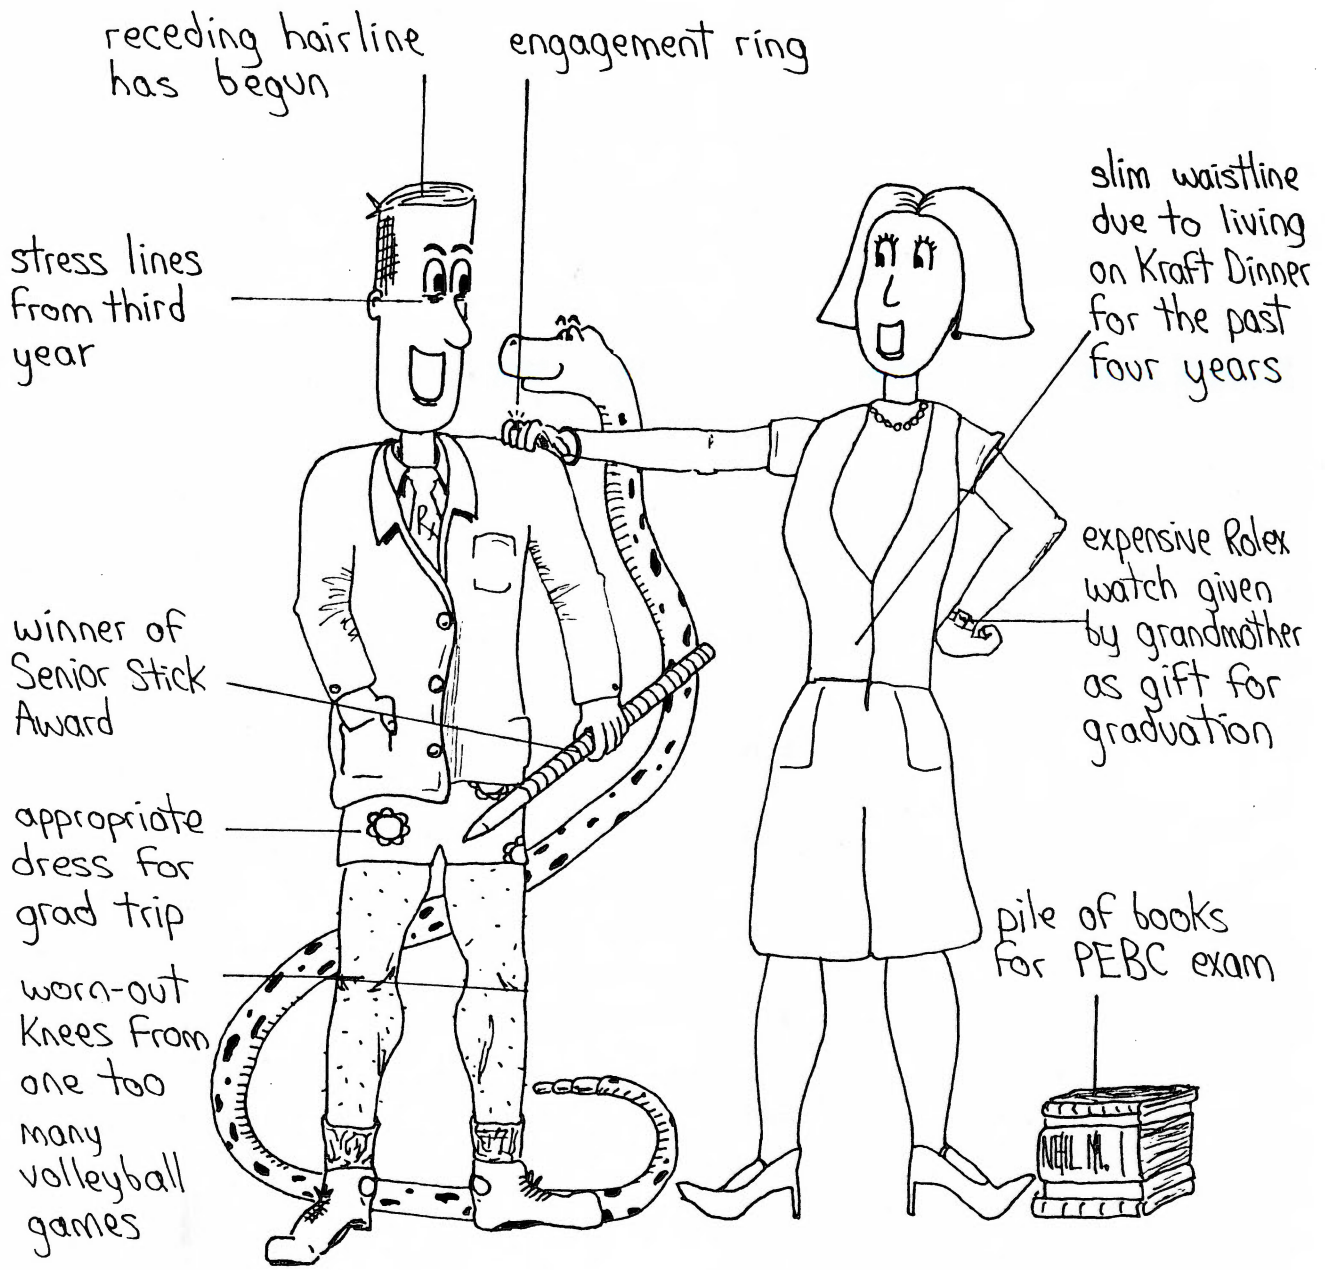 receding hairline
has begun
engagement ring
stress lines
from third
year
slim waistline
due to living
on Kraft Dinner
for the past
four years
Rx
expensive Rolex
watch given
by grandmother
as gift for
graduation
winner of
Senior Stick
Award
appropriate
dress for
grad trip
worn-out
knees from
one too
many
volleyball
games
pile of books
for PEBC exam